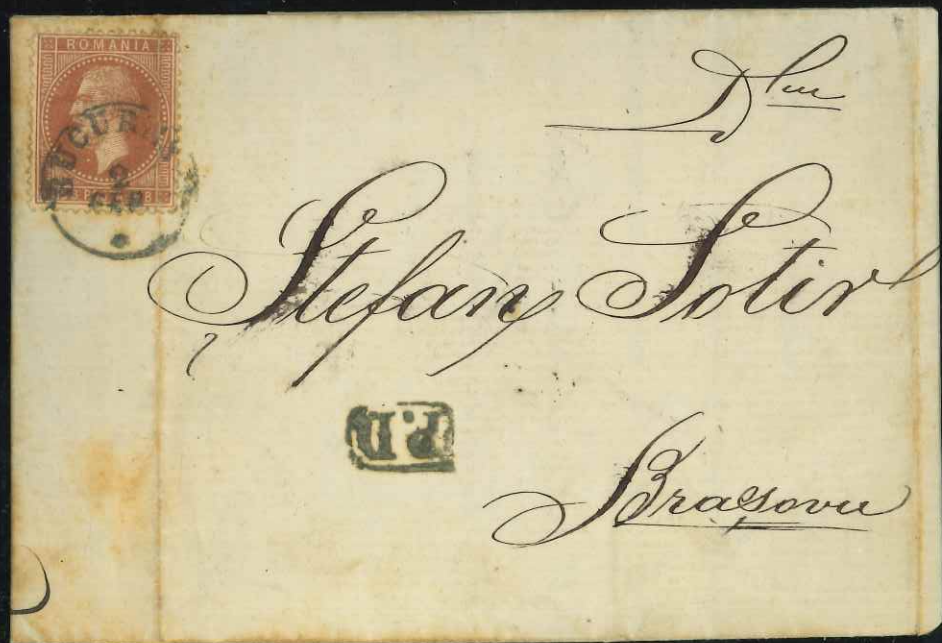 ROMANIA
BUCUR
2
FEB
Dlui
Stefan Sotir
P.D
Brașovu